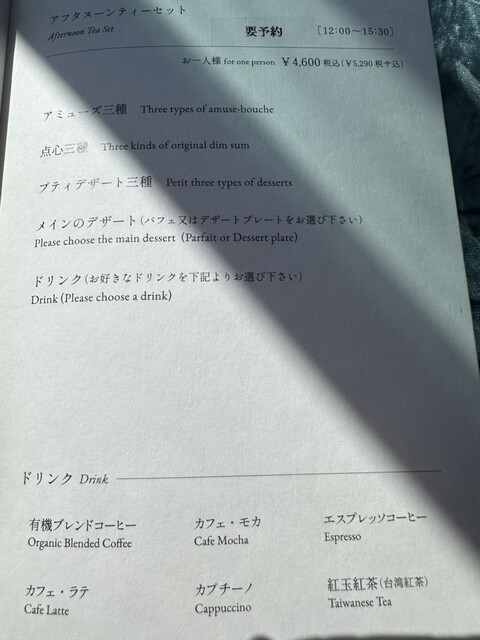 アフタヌーンティーセット
Afternoon Tea Set
要予約
［12:00〜15:30］
お一人様 for one person ￥4,600 税込(￥5,290 税サ込)
アミューズ三種 Three types of amuse-bouche
点心三種 Three kinds of original dim sum
プティデザート三種 Petit three types of desserts
メインのデザート(パフェ又はデザートプレートをお選び下さい)
Please choose the main dessert (Parfait or Dessert plate)
ドリンク(お好きなドリンクを下記よりお選び下さい)
Drink (Please choose a drink)
ドリンク Drink
有機ブレンドコーヒー
Organic Blended Coffee
カフェ・モカ
Cafe Mocha
エスプレッソコーヒー
Espresso
カフェ・ラテ
Cafe Latte
カプチーノ
Cappuccino
紅玉紅茶(台湾紅茶)
Taiwanese Tea